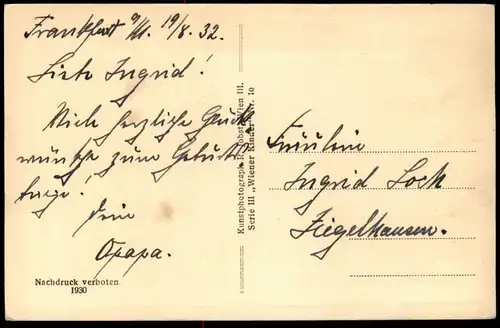 Frankfurt a/M. 19/8. 32.
Liebe Ingrid!
Viele herzliche Glück-
wünsche zum Geburts-
tage!
Dein
Opapa.
Nachdruck verboten
1930
Kunstphotograph. Wien III.
Serie III „Wiener Kinder" Nr. 10
Fräulein
Ingrid Loch
Ziegelhausen.